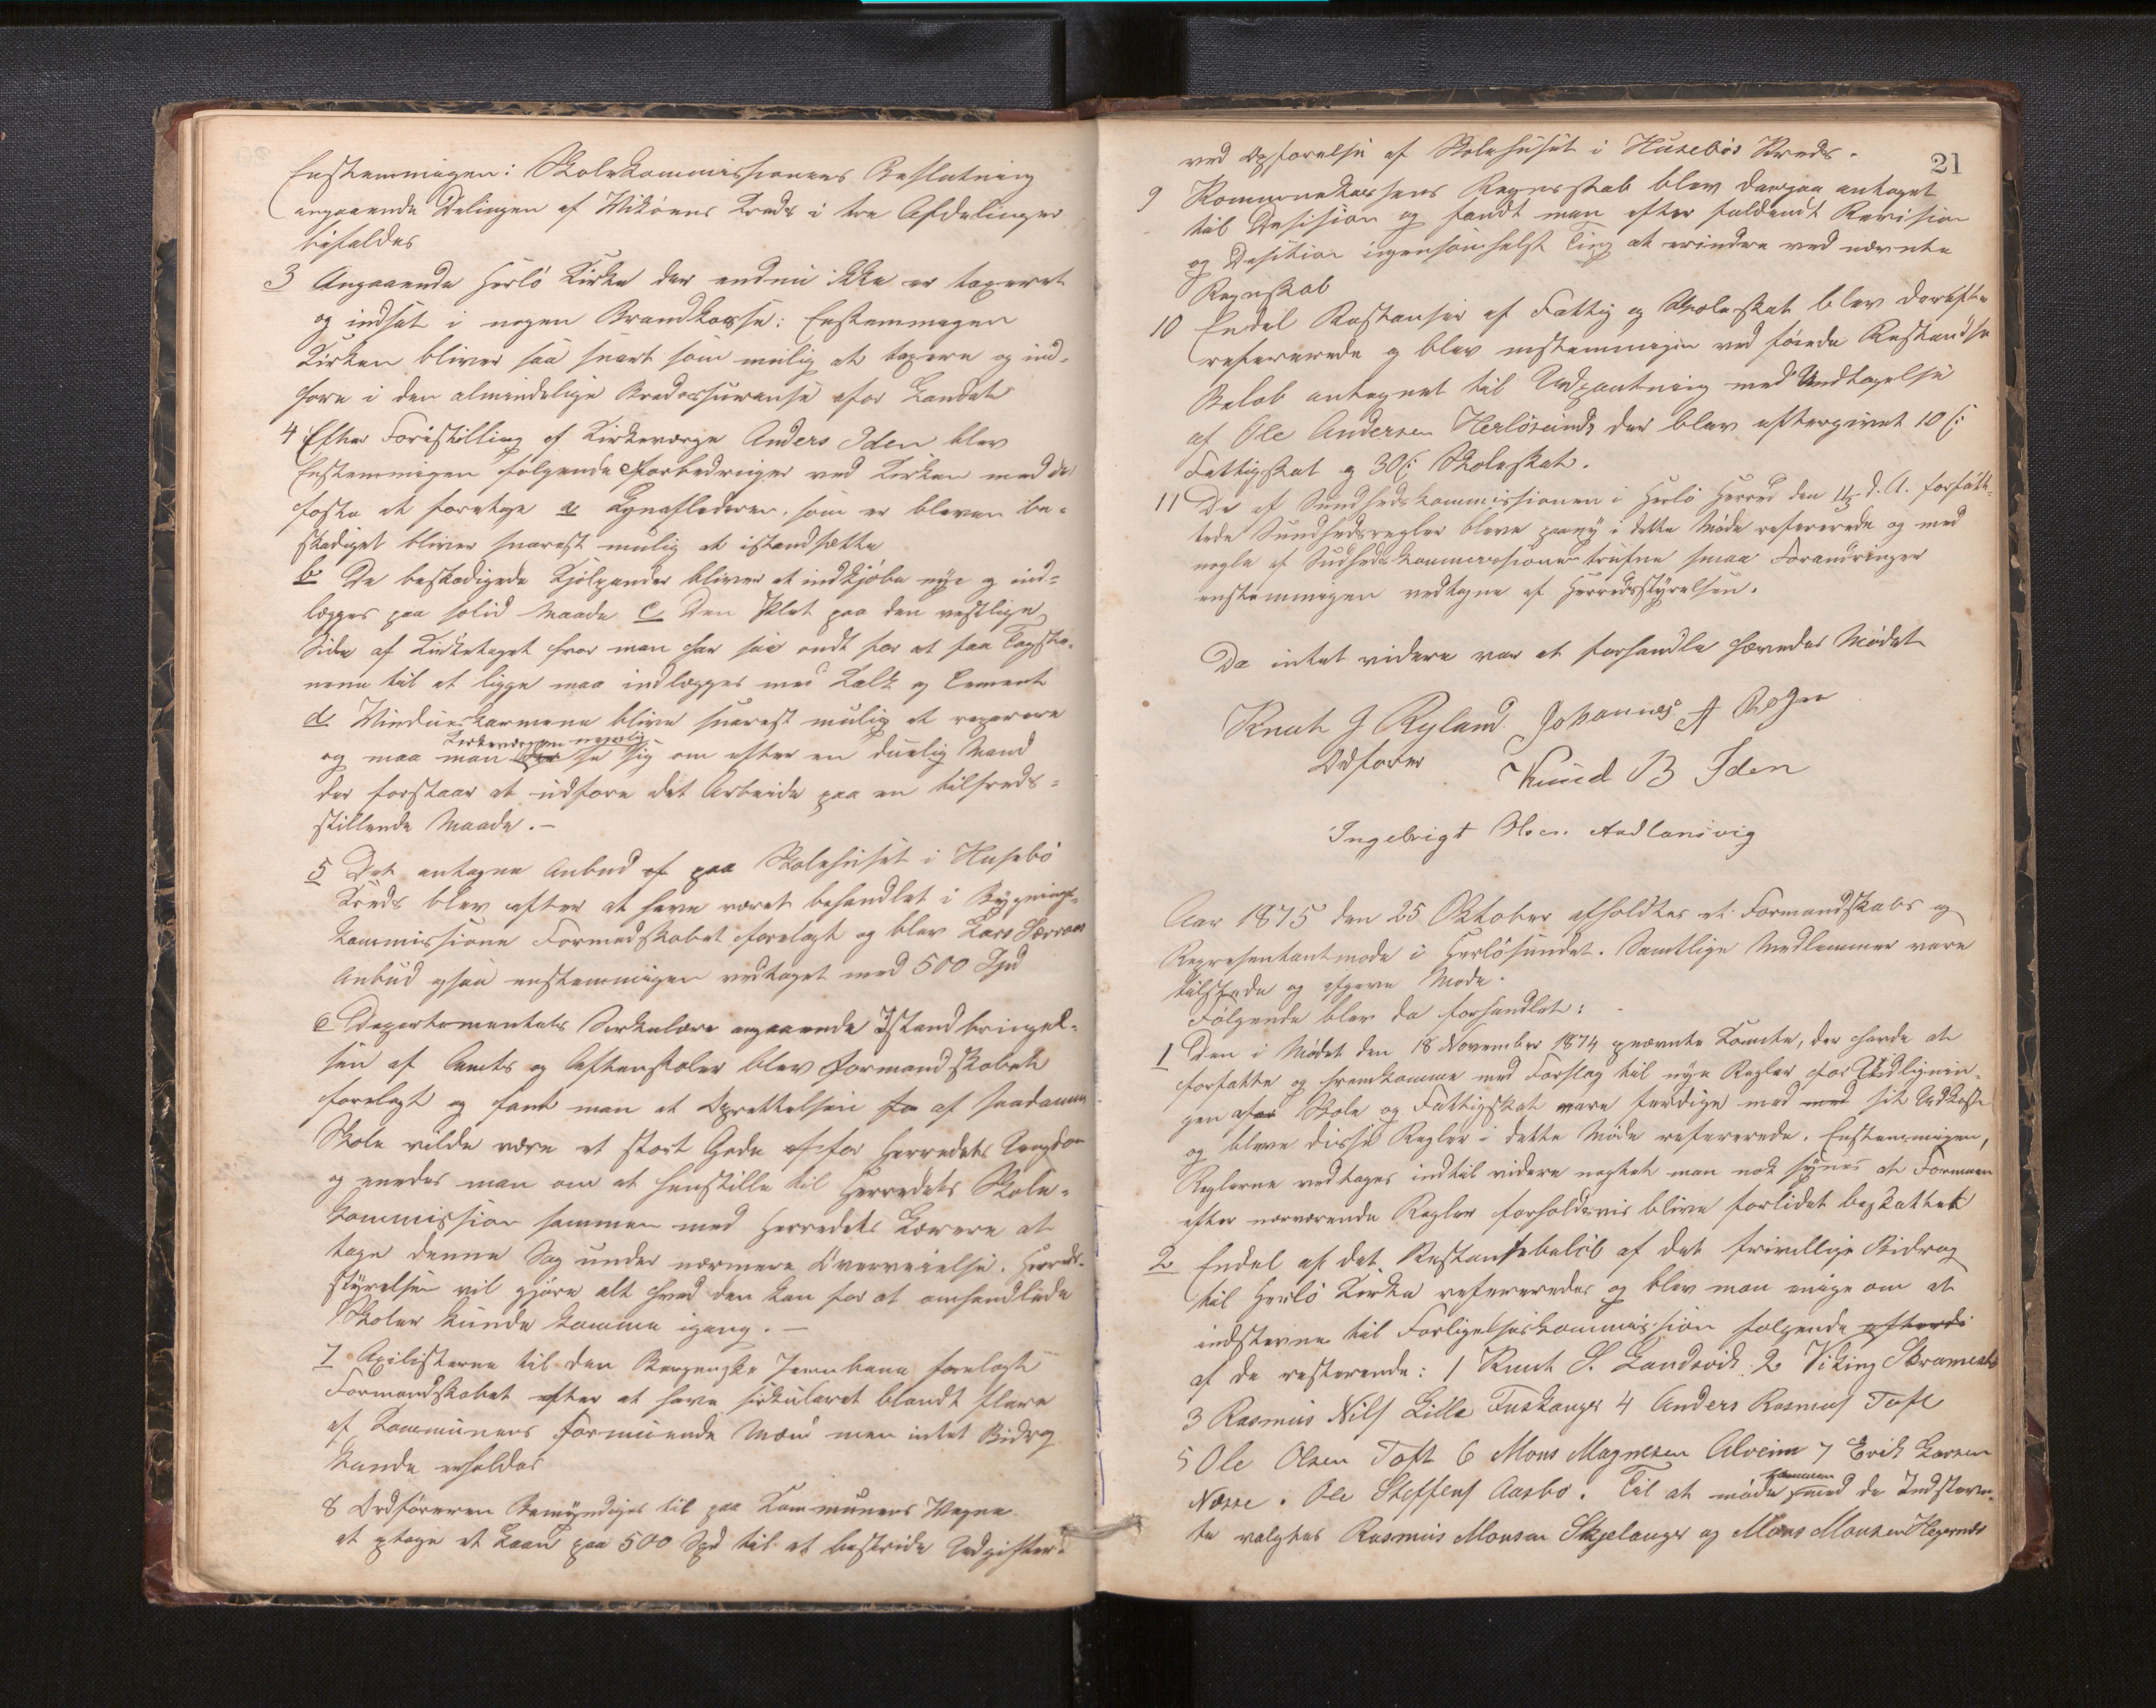 Enstemmigen: Skolekommissionens Beslutning
angaaende Delingen af Vikøens Kreds i tre Afdelinger
bifaldes
3 Angaaende Herlö Kirke der endnu ikke er taxeret
og indsat i nogen Brandkasse: Enstemmigen
Kirken bliver saa snart som mulig at taxere og ind-
føre i den almindelige Brandassuranse for Landet
4 Efter Forestilling af Kirkeværge Anders Iden blev
Enstemmigen følgende Forbedringer ved Kirken med det
første at foretage a Lynaflederen, som er bleven be-
skadiget bliver snarest mulig at istandsætte
b De beskadigede Kjølpander bliver at indkjøbe nye og ind-
lægges paa solid Maade c Den Plet paa den vestlige
Side af Kirketaget hvor man har saa ondt for at faa Tagste-
nene til at ligge maa indlægges med Kalk og Cement
d Vindueskarmene blive snarest mulig at reparere
Kirkeværgen nøielig
og maa man se sig om efter en duelig Mand
der forstaar at udføre det Arbeide paa en tilfreds-
stillende Maade.-
5 Det antagne Anbud af paa Skolehuset i Husebö
Kreds blev efter at have været behandlet i Bygnings-
kommissione Formandskabet forelagt og blev Lars
Anbud ogsaa enstemmigen vedtaget med 500 Spd
6 Departementets Sirkulære angaaende Istandbringel-
sen af Amts og Aftenskoler blev Formandskabet
forelagt og fant man at Oprettelsen fo af saadanne
Skole vilde være et stort Gode for Herredets Ungdom
og enedes man om at henstille til Herredets Skole-
kommission sammen med Herredets Lærere at
tage denne Sag under nærmere Overveielse. Herreds-
styrelsen vil gjøre alt hvad den kan for at omhandlede
Skoler kunde komme igang.-
7 Axilisterne til den Bergenske Jernbane forelagt
Formandskabet efter at have sirkuleret blandt flere
af Kommunens formuende Mænd men intet Bidrag
kunde erholdes
8 Ordføreren Bemyndiges til paa Kommunens Vegne
at optage et Laan paa 500 Spd til at bestride Udgifter-
21
ved Opførelse af Skolehuset i Husebös Kreds.
9 Kommunekassens Regnskab blev derpaa antaget
til Desision og fandt man efter foldendt Revision
og Desition ingensomhelst Ting at erindre ved nævnte
Regnskab
10 Endel Restanser af Fattig og Skoleskat blev derefter
refererede og blev enstemmigen ved føiede Restandse
Beløb antegnet til Udpantning med Undtagelse
af Ole Andersen Herlösund der blev eftergivet 10 ß
Fattigskat og 30 ß Skoleskat.
11 De af Sundhedskommissionen i Herlö Herred den d. A. forfat-
tede Sundhedsregler bleve paany i dette Möde refererede og med
nogle af Sudhedskommissionen trufne smaa Forandringer
enstemmigen vedtagne af Herredsstyrelsen.
Da intet videre var at forhandle hævedes Mödet
Knut J Ryland Johannes A
Ordfører Knud B Iden
Ingebrigt
Aar 1875 den 25 Oktober afholdtes et Formandskabs og
Representantmøde i Herlösundet. Samtlige Medlemmer vare
tilstede og afgave Møde.
Følgende blev da forhandlet:
1 Den i Mödet den 18 November 1874 nævnte Komite, der havde at
forfatte og fremkomme med Forslag til nye Regler for Udlignin-
gen af Skole og Fattigskat vare ferdige med med sit Udkast
og bleve disse Regler i dette Möde refererede. Enstemmigen,
Reglerne vedtages indtil videre uagtet man nok synes at Formuen
efter nærværende Regler forholdsvis blive forlidet beskattet
2 Endel af det Restansebelöb af det frivillige Bidrag
til Herlö Kirke refereredes og blev man enige om at
indstevne til Forligelseskommission følgende efterdi
af de resterende: 1 Knut S. Landsvik 2 Viking
3 Rasmus Nils Lille Fuskanger 4 Anders Rasmus Toft
5 Ole Olsen Toft 6 Mons Magnesen Alveim 7 Erik Larsen
Næsse. Ole Steffens Aasbø. Til at møde sammen med de Indstevn-
te valgtes Rasmus Monsen Skjelanger og Mons Monsen